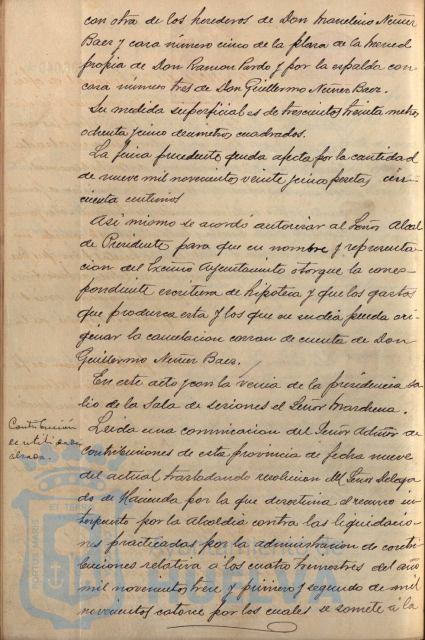 con otra de los herederos de Don Marcelino Núñez
Baez y casa número cinco de la plaza de la Merced
propia de Don Ramon Pardo y por la espalda con
casa número tres de Don Guillermo Núñez Baez.
Su medida superficial es de trescientos treinta metros
ochenta y cinco decimetros cuadrados.
La finca precedente queda afecta por la cantidad
de nueve mil novecientas veinte y cinco pesetas cin-
cuenta centimos
Asi mismo se acordó autorizar al Señor Alcal
de Presidente para que en nombre y representa-
cion del Excmo Ayuntamiento otorgue la corres-
pondiente escritura de hipoteca y que los gastos
que produzca esta y los que en su dia pueda ori
ginar la cancelacion corran de cuenta de Don
Guillermo Núñez Baez.
En este acto y con la venia de la presidencia sa
lio de la Sala de sesiones el Señor Marchena.
Contribución
de utilidades
alzada.
Leida una comunicacion del Señor Admor de
contribuciones de esta provincia de fecha nueve
del actual trasladando resolucion del Señor Delega
do de Hacienda por la que desestima el recurso in
terpuesto por la Alcaldia contra las liquidacio-
nes practicadas por la administracion de contri
buciones relativa a los cuatro trimestres del año
mil novecientos trece y primero y segundo de mil
novecientos catorce por los cuales se somete a la
PORTUS MARIS ET TERRAE
HUELVA